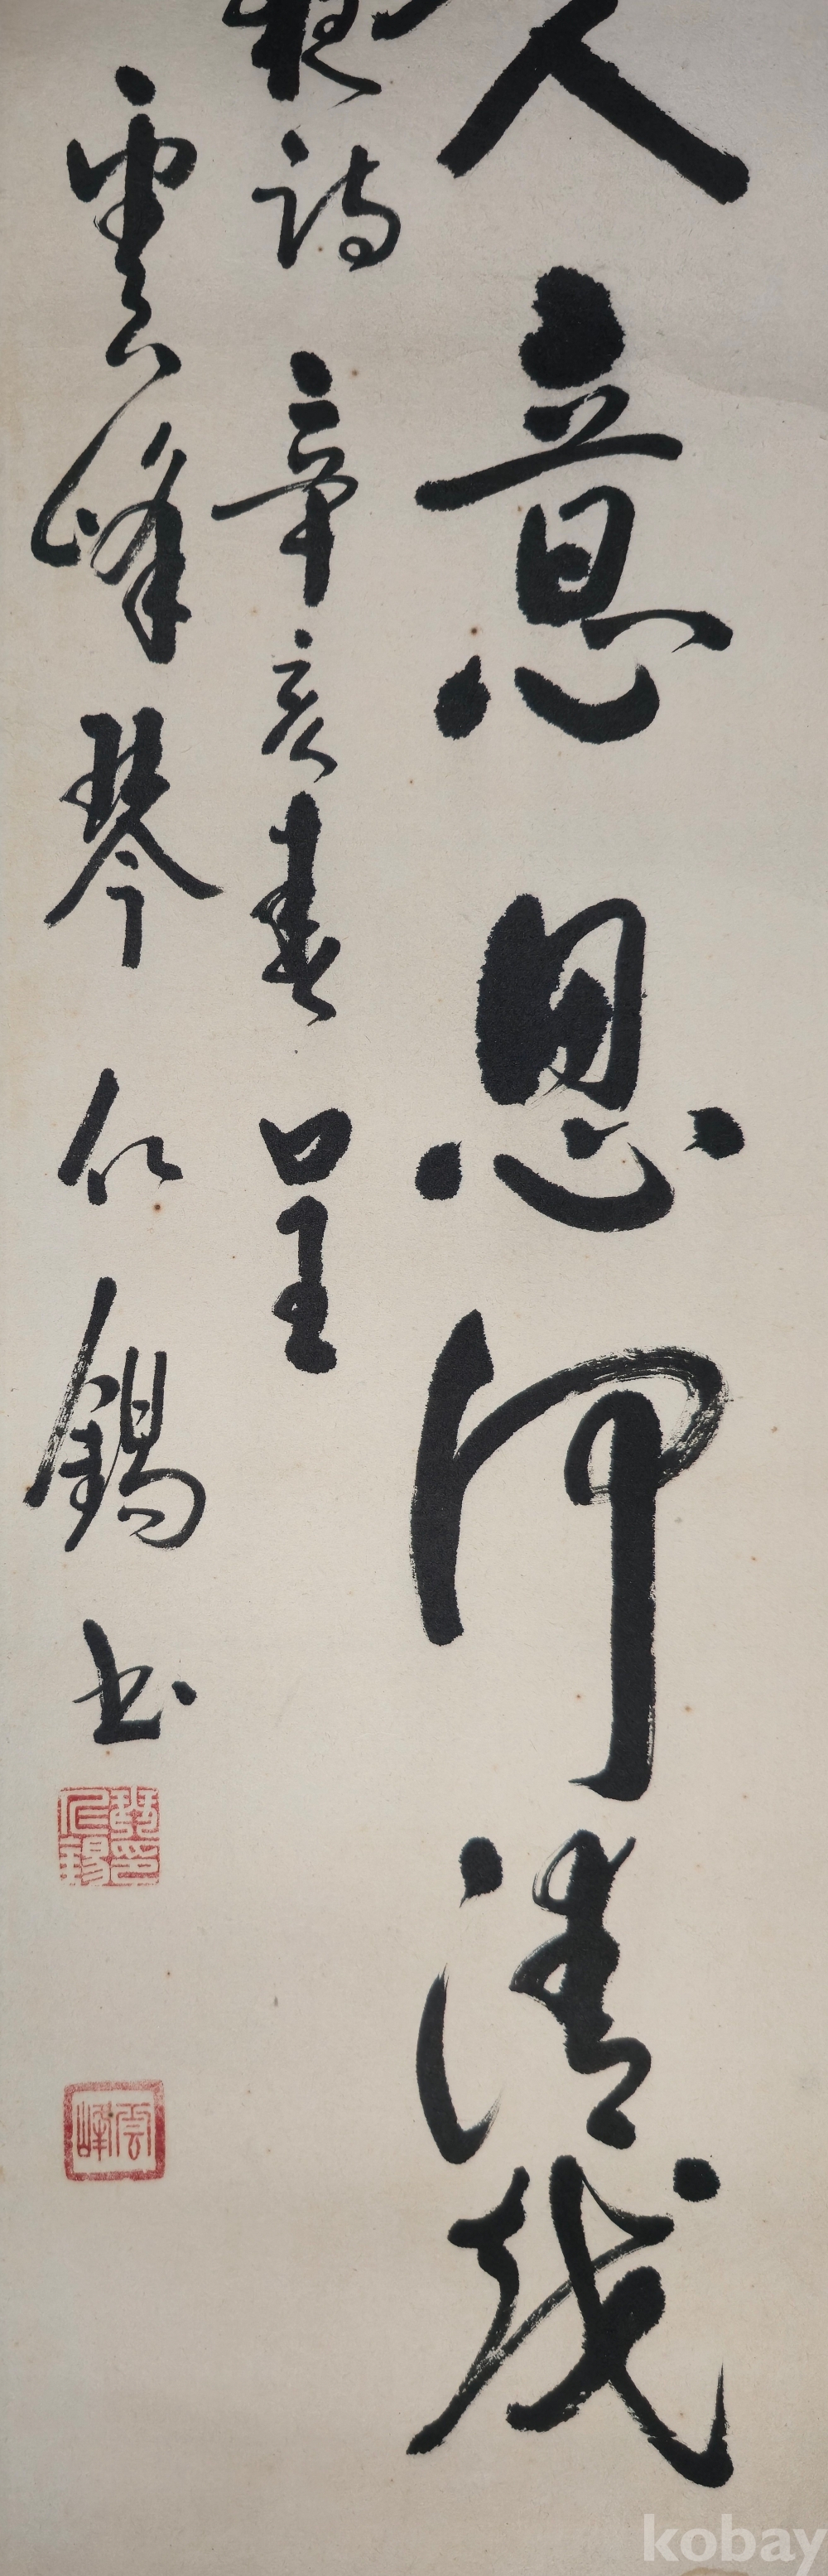 人意思何清越
詩 辛亥春 呈
雲峰 琴仁錫書
琴印仁錫
雲峰
kobay